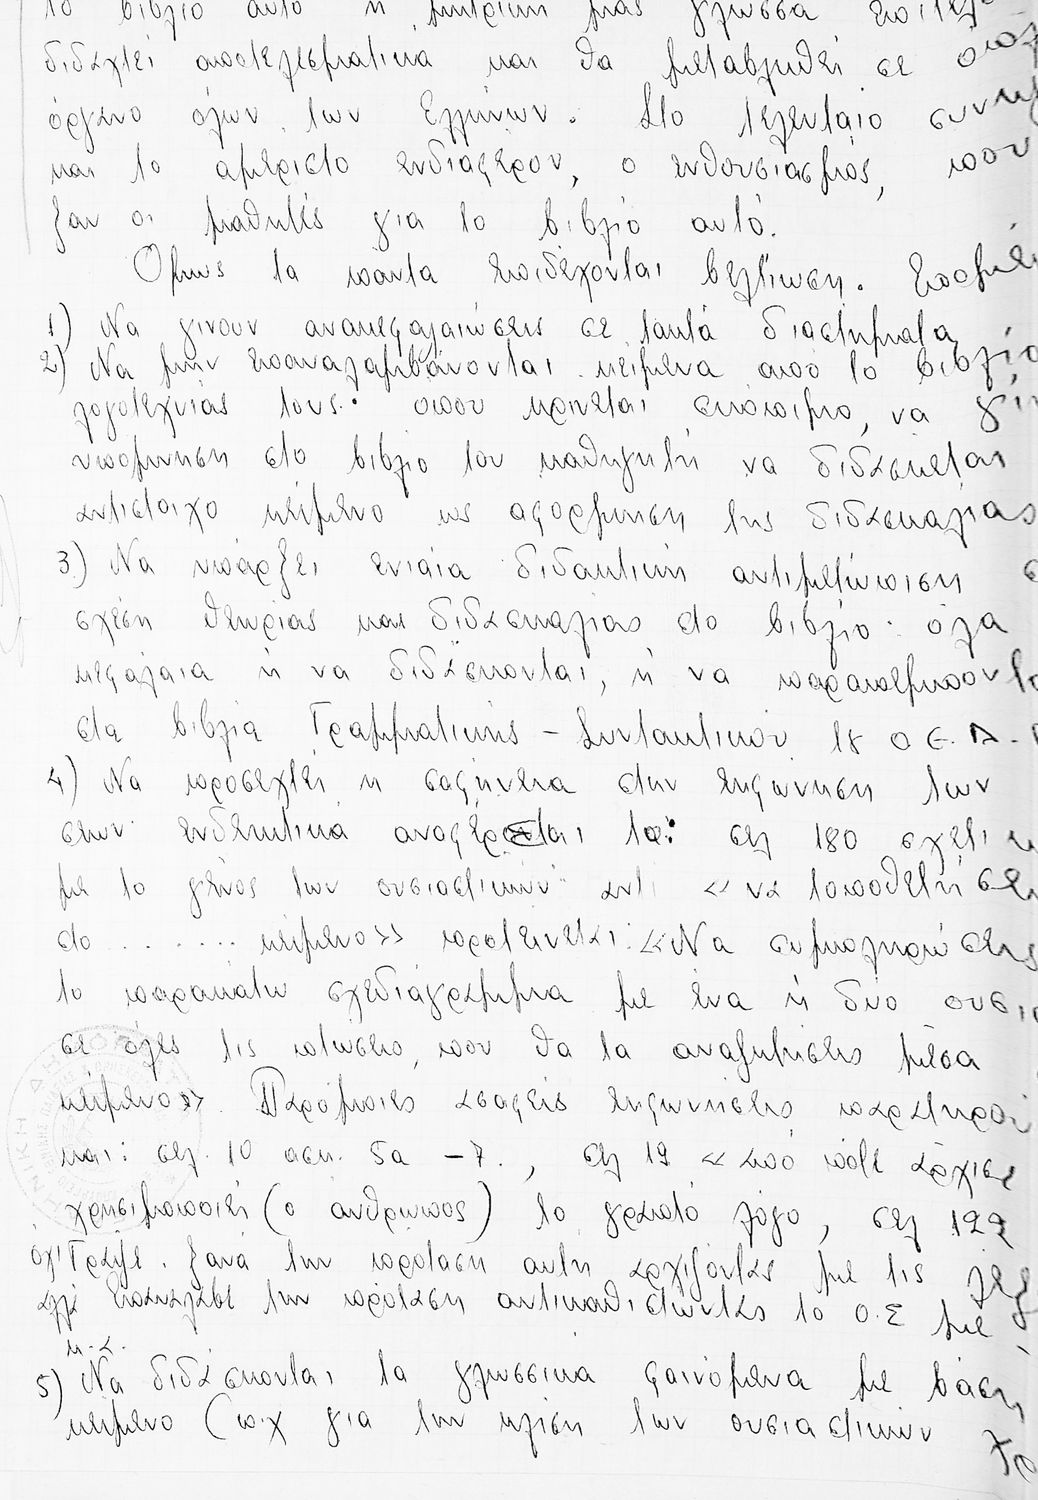 το βιβλίο αυτό η μητρική μας γλώσσα
διδαχτεί αποτελεσματικά και θα μεταβληθεί σε
όργανο όλων των Ελλήνων. Στο τελευταίο
και το αμέριστο ενδιαφέρον, ο ενθουσιασμός, που
ξαν οι μαθητές για το βιβλίο αυτό.
Όμως τα πάντα επιδέχονται βελτίωση.
1) Να γίνουν ανακεφαλαιώσεις σε τακτά διαστήματα
2) Να μην επαναλαμβάνονται κείμενα από το βιβλίο
λογοτεχνίας τους· όπου κρίνεται σκόπιμο, να γίν
υπόμνηση στο βιβλίο του καθηγητή να διδάσκεται
αντίστοιχο κείμενο ως αφόρμηση της διδασκαλίας
3) Να υπάρξει ενιαία διδακτική αντιμετώπιση σ
σχέση θεωρίας και διδασκαλίας στο βιβλίο· όλα
κεφάλαια ή να διδάσκονται, ή να παραπέμπουν
στα βιβλία Γραμματικής - Συντακτικού Ο.Ε.Δ.
4) Να προσεχτεί η σαφήνεια στην εκφώνηση των
σεων· ενδεικτικά αναφέρεται σελ 180 σχετικ
με το γένος των ουσιαστικών· αντί «να τοποθετήσει
στο ........ κείμενο» προτείνεται: «Να συμπληρώσεις
το παρακάτω σχεδιάγραμμα με ένα ή δύο ουσι
σε όλες τις πτώσεις, που θα τα αναζητήσεις μέσα
κείμενο». Παρόμοιες ασαφείς εκφωνήσεις παρατηρού
και: σελ. 10 ασκ. 5α - 7., σελ 19 «από πότε άρχισε
χρησιμοποιεί (ο άνθρωπος) το γραπτό λόγο, σελ 122
όχι Γράψε ξανά την πρόταση αυτή αρχίζοντας με τις λέξ
αλλά Επανάλαβε την πρόταση αντικαθιστώντας το Ο.Σ με
κ.α.
5) Να διδάσκονται τα γλωσσικά φαινόμενα με βάση
κείμενο (π.χ για την κλίση των ουσιαστικών